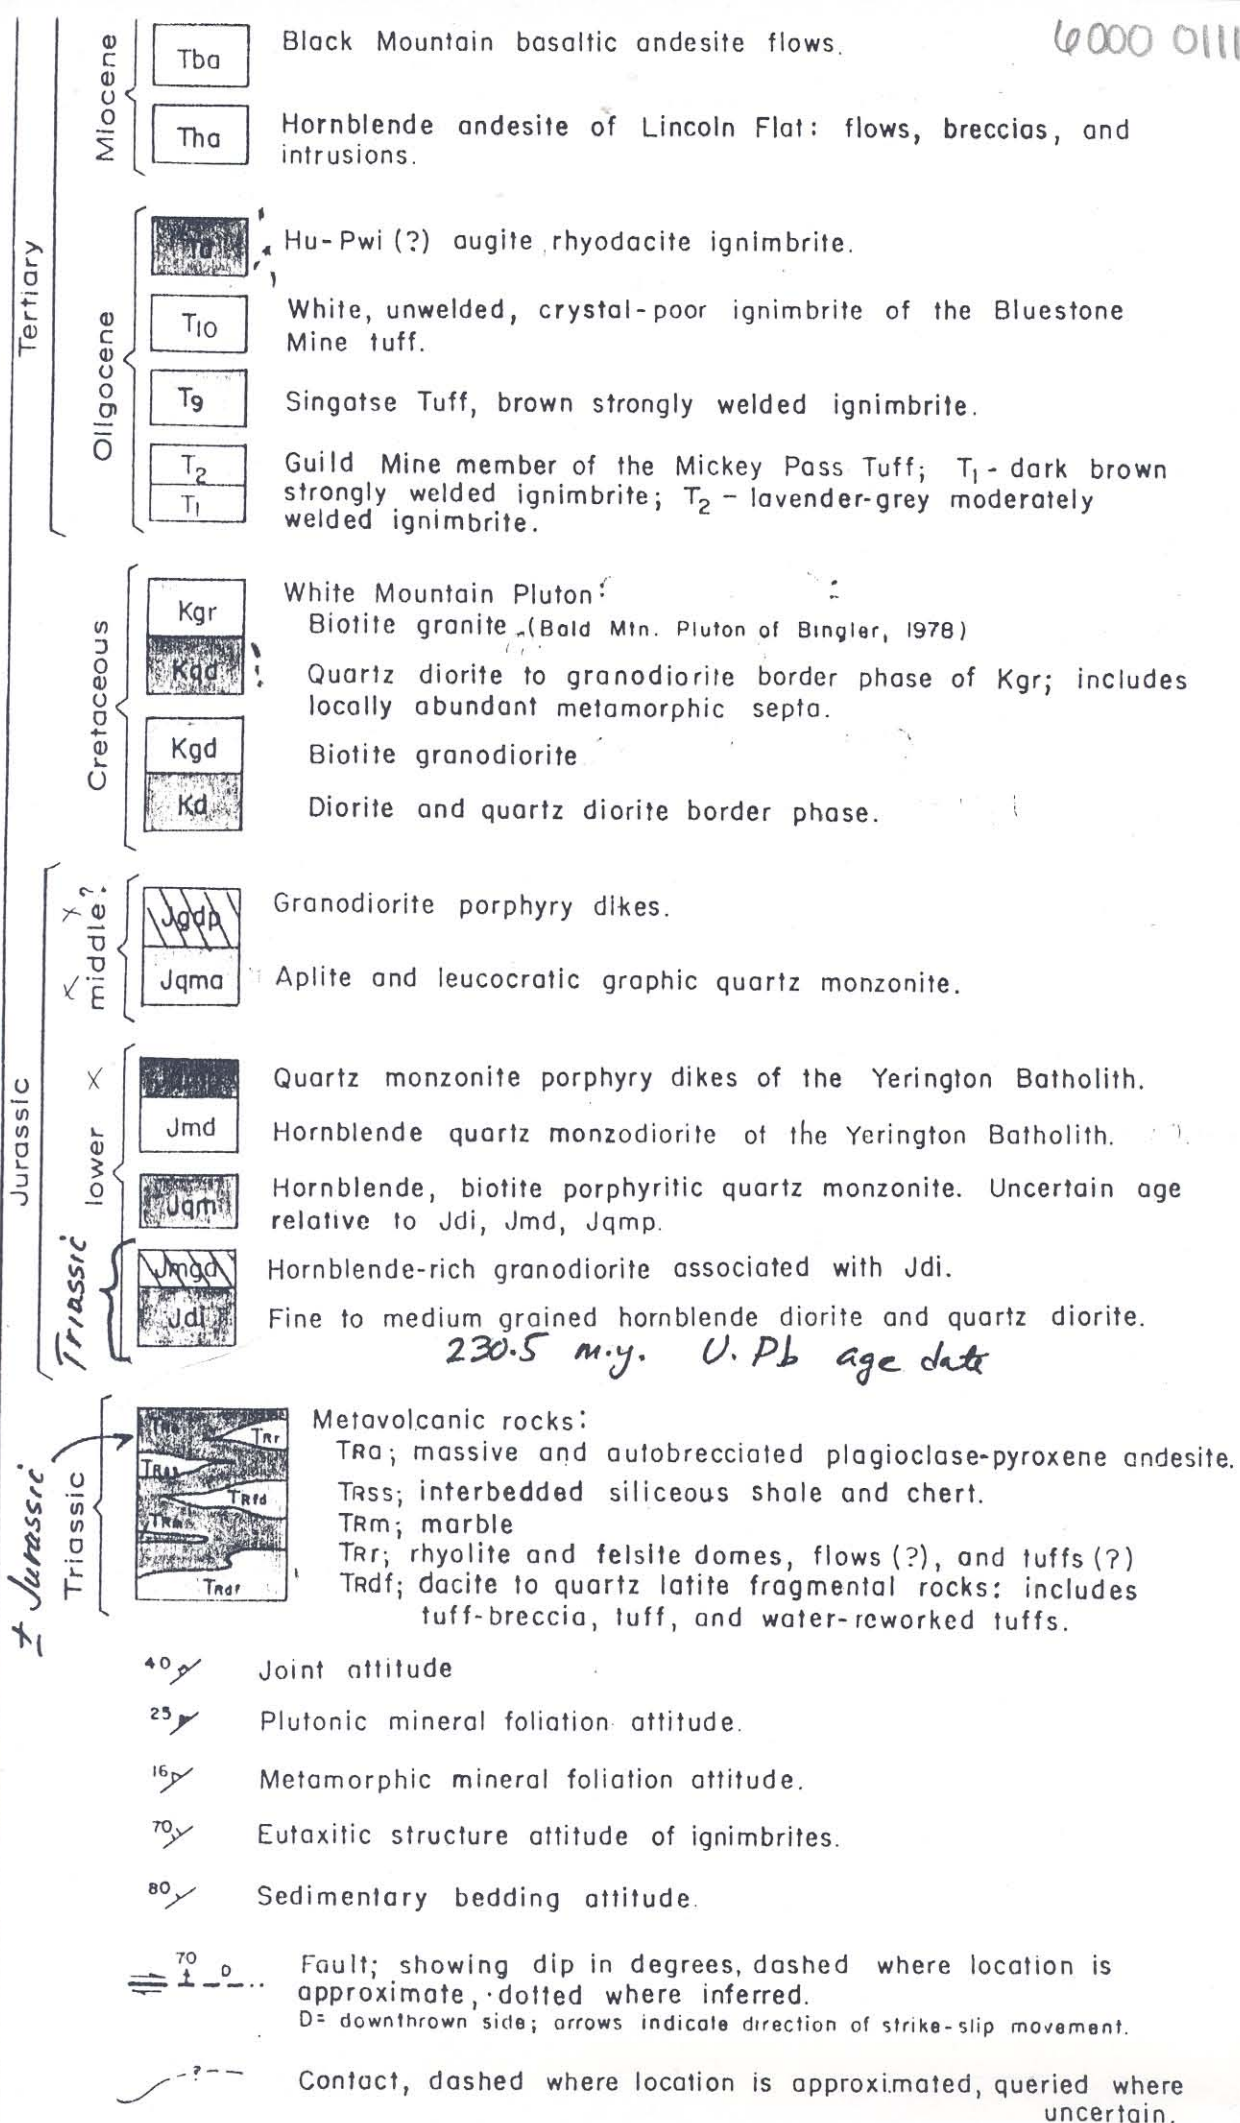 6000 0111
Tertiary
Miocene
Tba Black Mountain basaltic andesite flows.
Tha Hornblende andesite of Lincoln Flat: flows, breccias, and
intrusions.
Oligocene
Hu-Pwi (?) augite rhyodacite ignimbrite.
T10 White, unwelded, crystal-poor ignimbrite of the Bluestone
Mine tuff.
T9 Singatse Tuff, brown strongly welded ignimbrite.
T2 Guild Mine member of the Mickey Pass Tuff; T1 - dark brown
T1 strongly welded ignimbrite; T2 - lavender-grey moderately
welded ignimbrite.
Cretaceous
White Mountain Pluton:
Kgr Biotite granite (Bald Mtn. Pluton of Bingler, 1978)
Kqd Quartz diorite to granodiorite border phase of Kgr; includes
locally abundant metamorphic septa.
Kgd Biotite granodiorite
Kd Diorite and quartz diorite border phase.
Jurassic
middle?
Jgdp Granodiorite porphyry dikes.
Jqma Aplite and leucocratic graphic quartz monzonite.
lower
Quartz monzonite porphyry dikes of the Yerington Batholith.
Jmd Hornblende quartz monzodiorite of the Yerington Batholith.
Jqm Hornblende, biotite porphyritic quartz monzonite. Uncertain age
relative to Jdi, Jmd, Jqmp.
Triassic
Jmgd Hornblende-rich granodiorite associated with Jdi.
Jdi Fine to medium grained hornblende diorite and quartz diorite.
230.5 m.y. U.Pb age date
± Jurassic
Triassic
TRa TRr TRss TRfd TRm TRdf
Metavolcanic rocks:
TRa; massive and autobrecciated plagioclase-pyroxene andesite.
TRss; interbedded siliceous shale and chert.
TRm; marble
TRr; rhyolite and felsite domes, flows (?), and tuffs (?)
TRdf; dacite to quartz latite fragmental rocks: includes
tuff-breccia, tuff, and water-reworked tuffs.
40 Joint attitude
25 Plutonic mineral foliation attitude.
16 Metamorphic mineral foliation attitude.
70 Eutaxitic structure attitude of ignimbrites.
80 Sedimentary bedding attitude.
70 D Fault; showing dip in degrees, dashed where location is
approximate, dotted where inferred.
D= downthrown side; arrows indicate direction of strike-slip movement.
? Contact, dashed where location is approximated, queried where
uncertain.